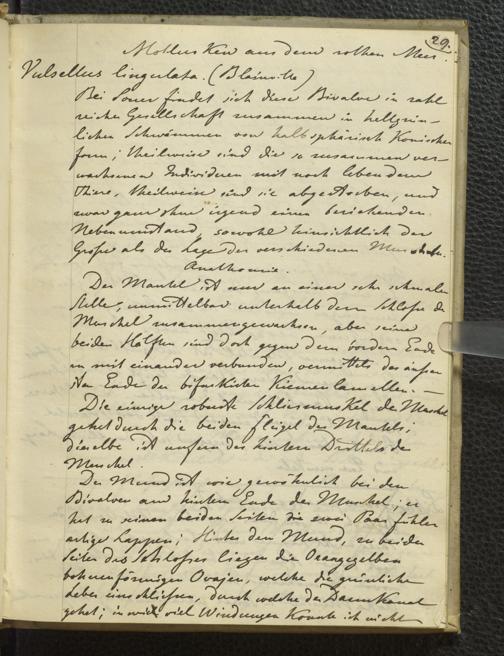 29.
Mollusken aus dem rothen Meer.
Vulsellus lingulata. (Blainville)
Bei Souer findet sich diese Bivalve in zahl
reicher Gesellschaft zusammen in hellgrün-
lichen Schwämmen von halbsphärisch Konischer
form; theilweise sind die so zusammen ver
wachsenen Individuen mit noch lebendem
Thiere, theilweise sind sie abgestorben, und
zwar ganz ohne irgend einen beziehenden
Nebenumstand, sowohl hinsichtlich der
Große als der Lage der verschiedenen Muscheln.
Anathomie.
Der Mantel ist nur an einer sehr schmalen
Stelle, unmittelbar unterhalb dem Schloße der
Muschel zusammengewachsen, aber seine
beiden Hälften sind dort gegen dem vordern Ende
zu mit einander verbunden, vermittels des äußer
sten Ende der bifurkirten Kiemenlamellen. —
Die einzige robuste Schliesmuskel der Muschel
gehet durch die beiden flügel des Mantels;
dieselbe ist unfern des hintern Drittels der
Muschel.
Der Mund ist wie gewöhnlich bei den
Bivalven am hintern Ende der Muschel; er
hat zu seinen beiden Seiten die zwei Paar fühler
artige Lappen; Hinter dem Mund, zu beiden
Seiten des Schlosses liegen die Orangegelben
bohnenförmigen Ovarien, welche die grünliche
Leber einschließen, durch welche der Darmkanal
gehet; in wie viel Windungen konnte ich nicht